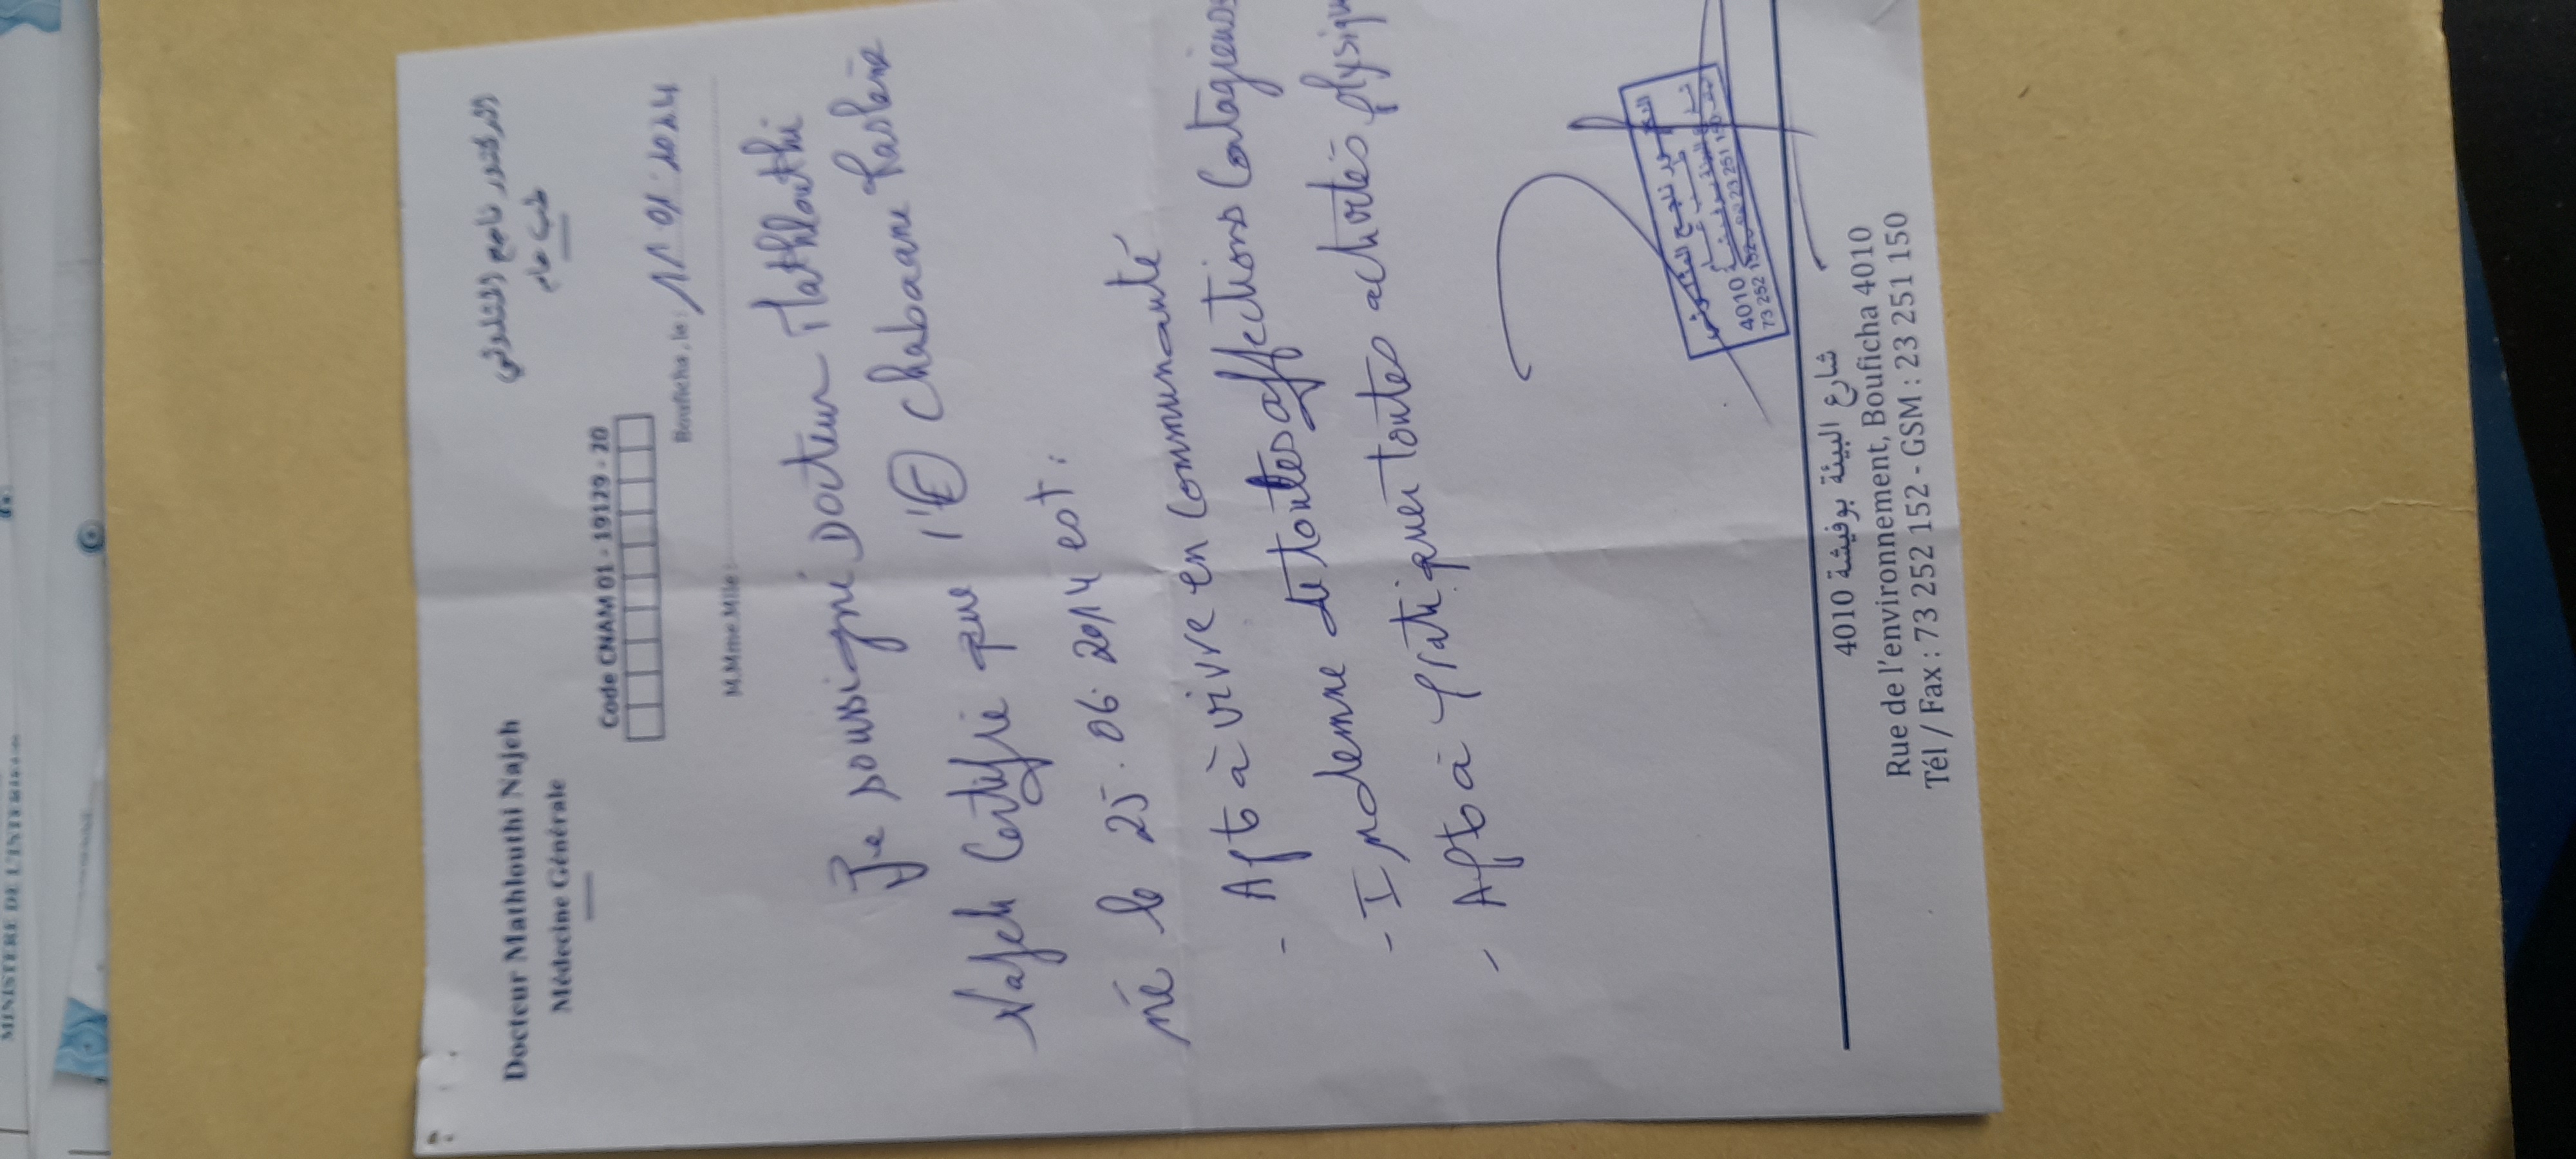 MINISTÈRE DE L'INTÉRIEUR
Docteur Mathlouthi Najeh
Médecine Générale
الدكتور ناجح المثلوثي
طب عام
Code CNAM 01 - 19129 - 20
Bouficha, le : 11.01.2024
M.Mme.Mlle :
Je soussigné Docteur Mathlouthi
Najeh Certifie que l'E Chabaane
né le 25.06.2014 est :
- Apt à vivre en Communauté
- Indemne de toutes affections Contagieuses
- Apt à Pratiquer toutes activités physiqu
4010
73 252 152 23 251 150
شارع البيئة بوفيشة 4010
Rue de l'environnement, Bouficha 4010
Tél / Fax : 73 252 152 - GSM : 23 251 150